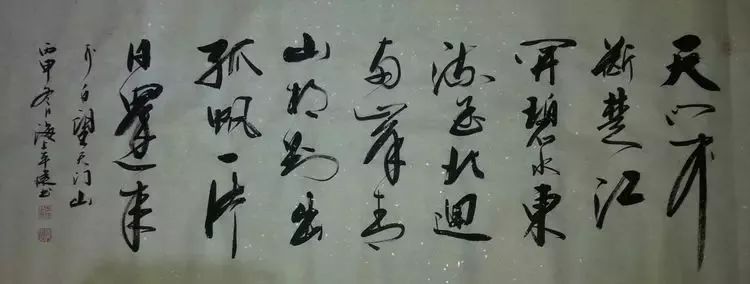 天门中
断楚江
开碧水東
流至北迴
两岸青
山相对出
孤帆一片
日邊来
李白望天门山
丙申冬日海上